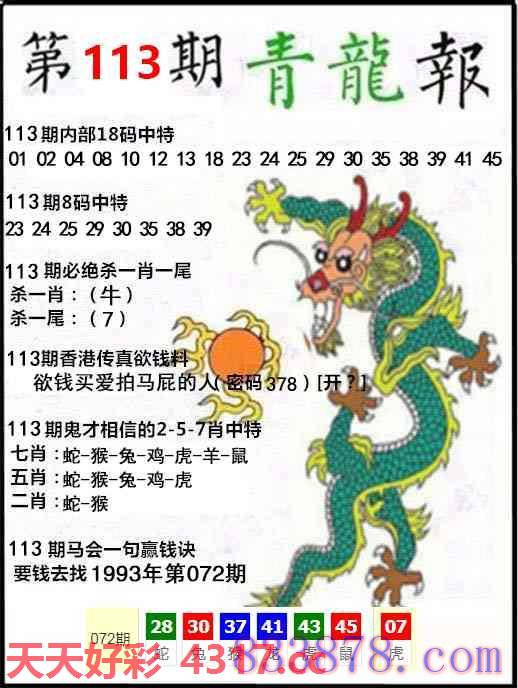 第113期青龍報
113期内部18码中特
01 02 04 08 10 12 13 18 23 24 25 29 30 35 38 39 41 45
113期8码中特
23 24 25 29 30 35 38 39
113期必绝杀一肖一尾
杀一肖：（牛）
杀一尾：（7）
113期香港传真欲钱料
欲钱买爱拍马屁的人（密码378）[开？]
113期鬼才相信的2-5-7肖中特
七肖：蛇-猴-兔-鸡-虎-羊-鼠
五肖：蛇-猴-兔-鸡-虎
二肖：蛇-猴
113期马会一句赢钱诀
要钱去找1993年第072期
072期 28 30 37 41 43 45 07
蛇 兔 猴 龙 虎 鼠 虎
天天好彩 4317.cc